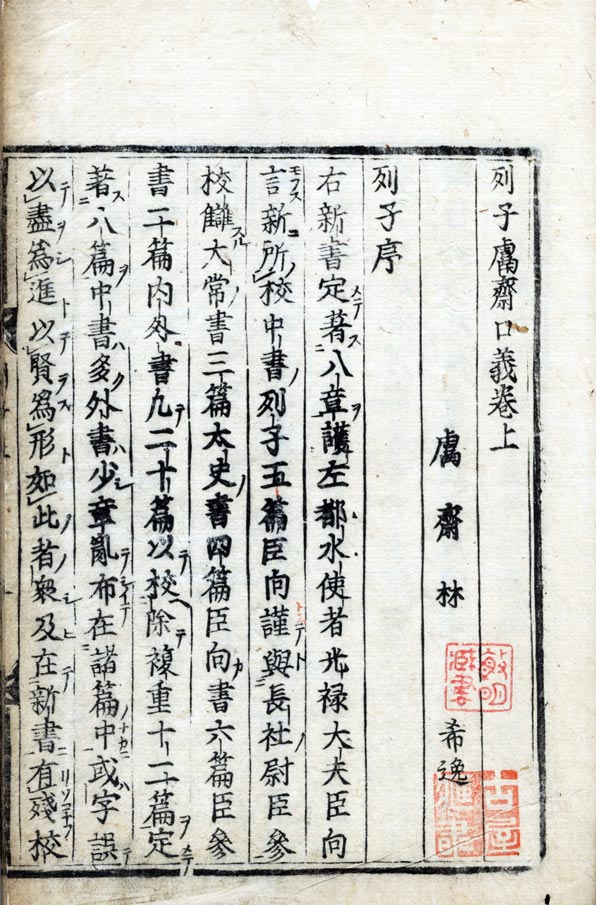 列子鬳齋口義卷上
鬳齋林希逸
列子序
右新書定著八章護左都水使者光禄大夫臣向
言新所校中書列子五篇臣向謹與長社尉臣參
校讎大常書三篇太史書四篇臣向書六篇臣參
書二十篇内外書凢二十篇以校除複重十二篇定
著八篇中書多外書少章亂布在諸篇中或字誤
以盡爲進以賢爲形如此者衆及在新書有殘校